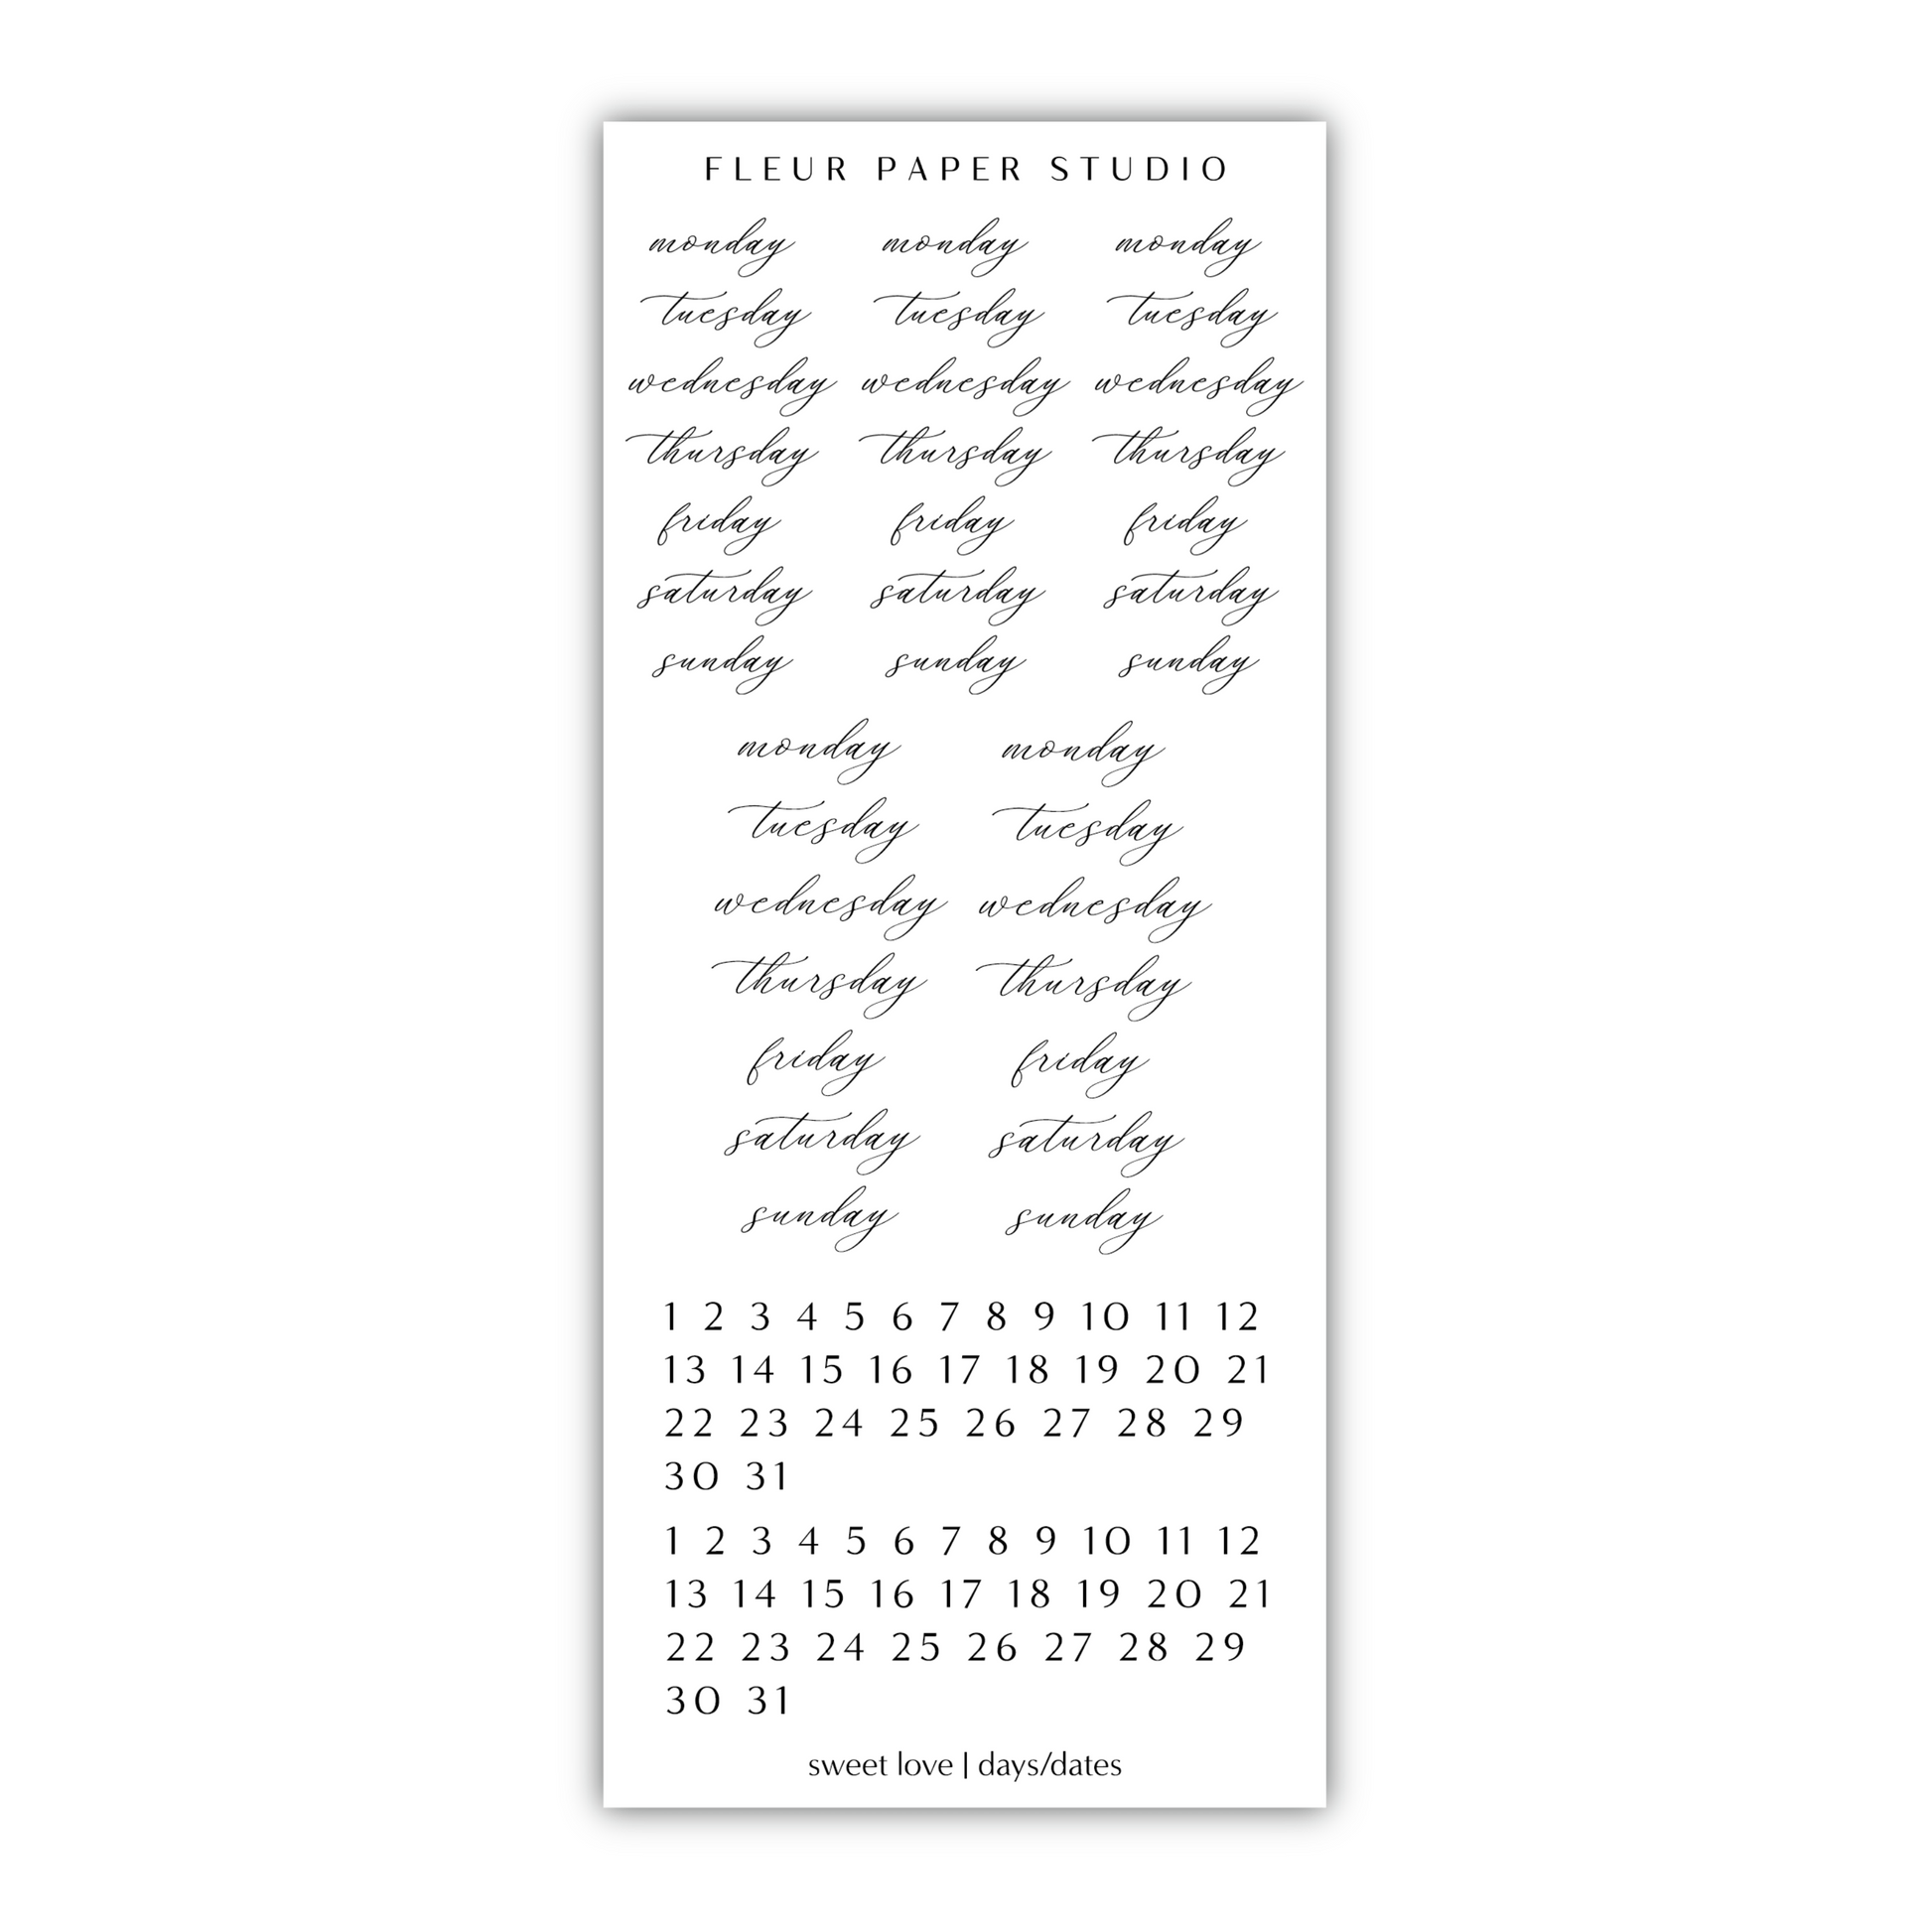 FLEUR PAPER STUDIO
monday monday monday
tuesday tuesday tuesday
wednesday wednesday wednesday
thursday thursday thursday
friday friday friday
saturday saturday saturday
sunday sunday sunday
monday monday
tuesday tuesday
wednesday wednesday
thursday thursday
friday friday
saturday saturday
sunday sunday
1 2 3 4 5 6 7 8 9 10 11 12
13 14 15 16 17 18 19 20 21
22 23 24 25 26 27 28 29
30 31
1 2 3 4 5 6 7 8 9 10 11 12
13 14 15 16 17 18 19 20 21
22 23 24 25 26 27 28 29
30 31
sweet love | days/dates